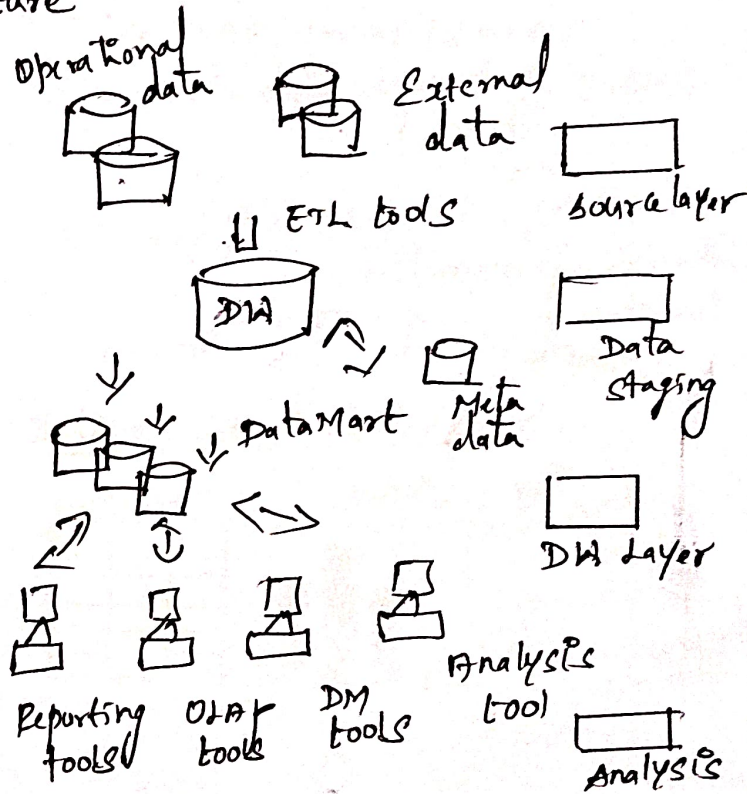 Operational
data
External
data
source layer
ETL tools
DW
Data
staging
Meta
data
DataMart
DW Layer
Reporting
tools
OLAP
tools
DM
tools
Analysis
tool
Analysis